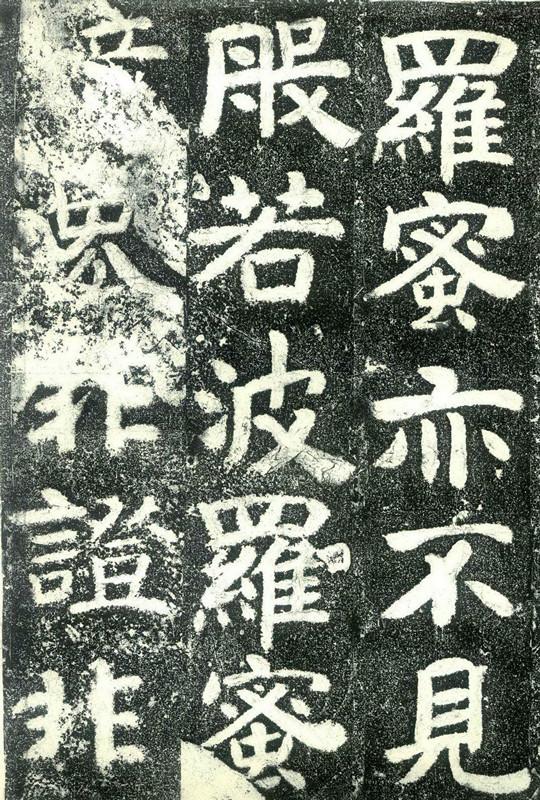 羅蜜亦不見
般若波羅蜜
界非證非